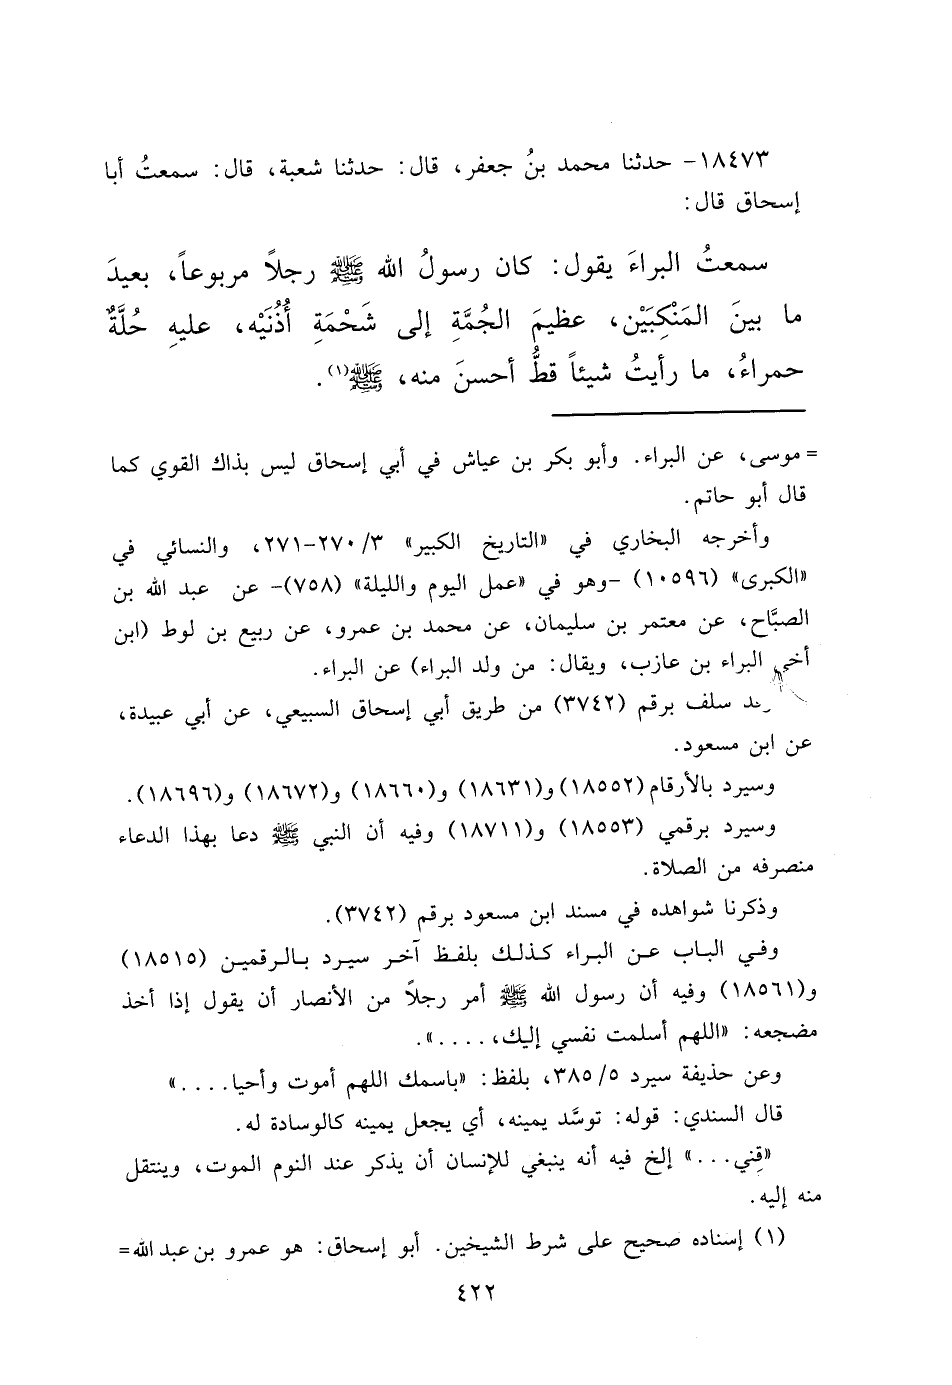 ١٨٤٧٣- حدثنا محمد بنُ جعفر، قال: حدثنا شعبة، قال: سمعتُ أبا
إسحاق قال:
سمعتُ البراءَ يقول: كان رسولُ الله ﷺ رجلاً مربوعاً، بعيدَ
ما بينَ المَنْكِبَيْن، عظيمَ الجُمَّةِ إلى شَحْمَةِ أُذُنَيْه، عليهِ حُلَّةٌ
حمراءُ، ما رأيتُ شيئاً قطُّ أحسنَ منه، ﷺ(١).
= موسى، عن البراء. وأبو بكر بن عياش في أبي إسحاق ليس بذاك القوي كما
قال أبو حاتم.
وأخرجه البخاري في «التاريخ الكبير» ٣/ ٢٧٠-٢٧١، والنسائي في
«الكبرى» (١٠٥٩٦) -وهو في «عمل اليوم والليلة» (٧٥٨)- عن عبد الله بن
الصبَّاح، عن معتمر بن سليمان، عن محمد بن عمرو، عن ربيع بن لوط (ابن
أخي البراء بن عازب، ويقال: من ولد البراء) عن البراء.
سلف برقم (٣٧٤٢) من طريق أبي إسحاق السبيعي، عن أبي عبيدة،
عن ابن مسعود.
وسيرد بالأرقام (١٨٥٥٢) و(١٨٦٣١) و(١٨٦٦٠) و(١٨٦٧٢) و(١٨٦٩٦).
وسيرد برقمي (١٨٥٥٣) و(١٨٧١١) وفيه أن النبي ﷺ دعا بهذا الدعاء
منصرفه من الصلاة.
وذكرنا شواهده في مسند ابن مسعود برقم (٣٧٤٢).
وفي الباب عن البراء كذلك بلفظ آخر سيرد بالرقمين (١٨٥١٥)
و(١٨٥٦١) وفيه أن رسول الله ﷺ أمر رجلاً من الأنصار أن يقول إذا أخذ
مضجعه: «اللهم أسلمت نفسي إليك، ....».
وعن حذيفة سيرد ٥/ ٣٨٥، بلفظ: «باسمك اللهم أموت وأحيا....»
قال السندي: قوله: توسَّد يمينه، أي يجعل يمينه كالوسادة له.
«قِني...» إلخ فيه أنه ينبغي للإنسان أن يذكر عند النوم الموت، وينتقل
منه إليه.
(١) إسناده صحيح على شرط الشيخين. أبو إسحاق: هو عمرو بن عبد الله=
٤٢٢